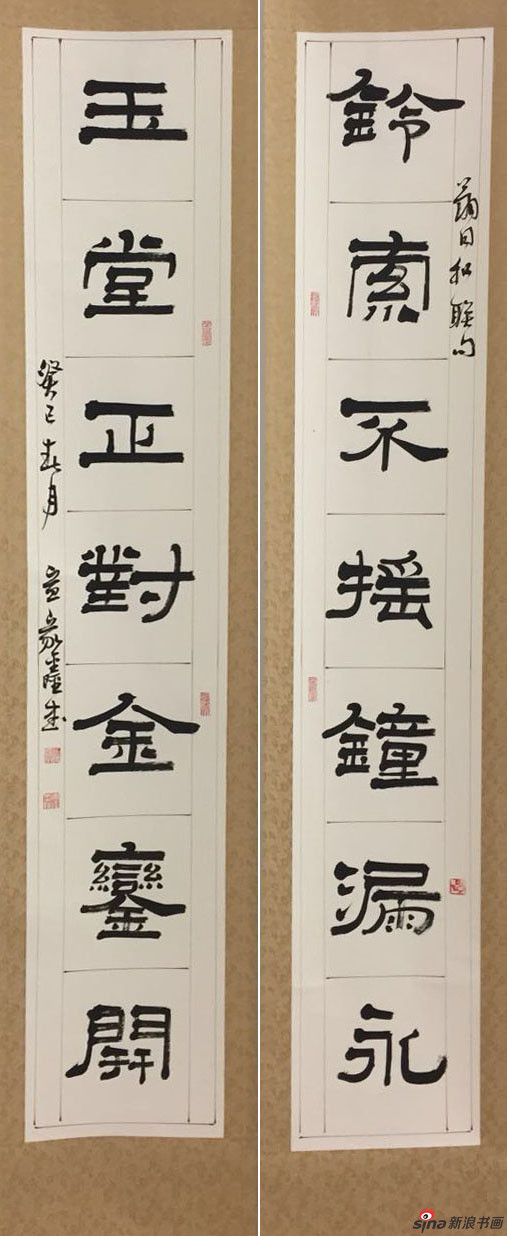 鈴索不搖鐘漏永
聯句
玉堂正對金鑾開
癸巳春月
sina新浪书画